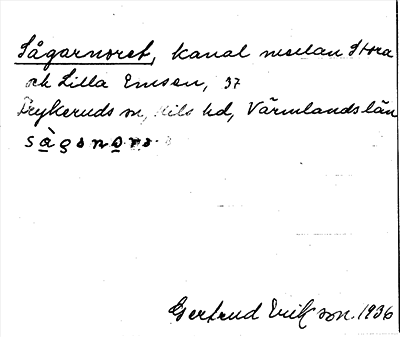 Sågarnoret, kanal mellan Stora
och Lilla Emsen, 37
Frykeruds sn, Kils hd, Värmlands län
Gertrud Erikson. 1936